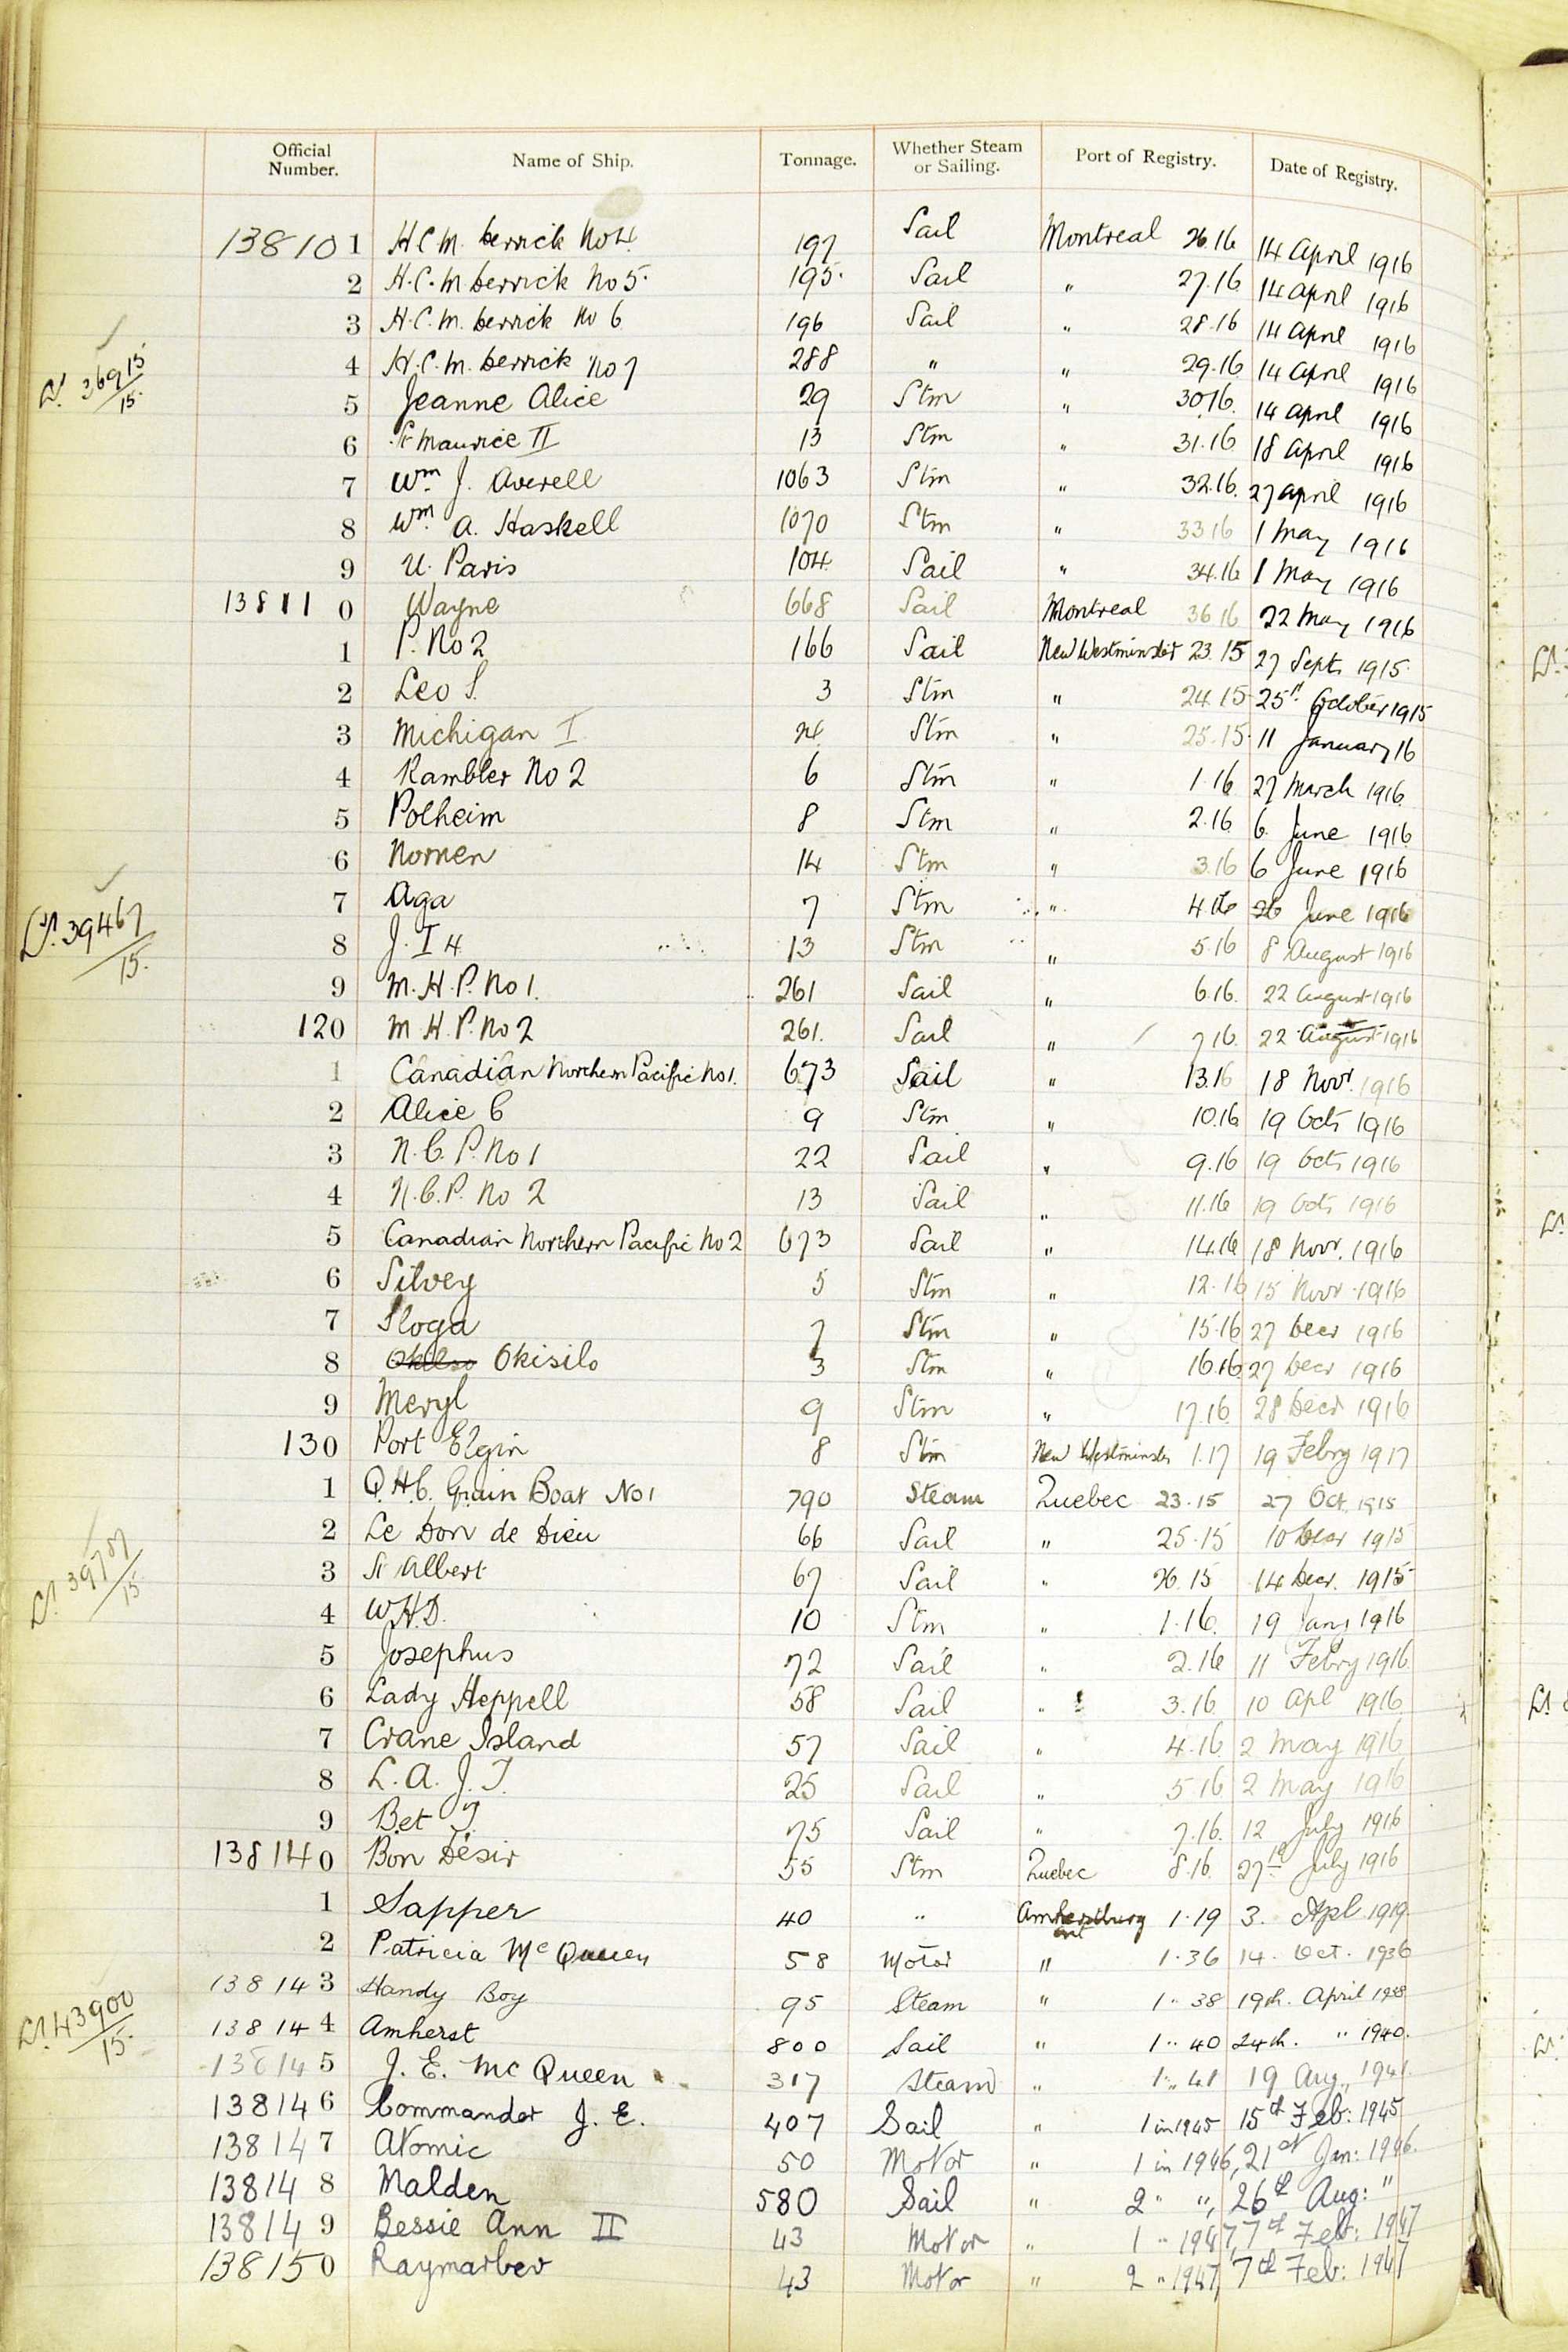 Official Number. Name of Ship. Tonnage. Whether Steam or Sailing. Port of Registry. Date of Registry.
138101 H.C.M. Derrick No 4. 197 Sail Montreal 26.16 14 April 1916
2 H.C.M Derrick No 5. 195. Sail " 27.16 14 April 1916
3 H.C.M. Derrick No 6 196 Sail " 28.16 14 April 1916
4 H.C.M. Derrick No 7 288 " " 29.16 14 April 1916
36915/15.
5 Jeanne Alice 29 Stm " 30.16. 14 April 1916
6 St Maurice II 13 Stm " 31.16 18 April 1916
7 Wm. J. Averell 1063 Stm " 32.16. 27 April 1916
8 Wm. A. Haskell 1070 Stm " 33 16 1 May 1916
9 U. Paris 104. Sail " 34.16 1 May 1916
138110 Wayne 668 Sail Montreal 36 16 22 May 1916
1 P. No 2 166 Sail New Westminster 23.15 27 Sept. 1915.
2 Leo S. 3 Stm " 24.15 25th October 1915
3 Michigan I 24 Stm " 25.15. 11 January 16
4 Rambler No 2 6 Stm " 1.16 27 March 1916.
5 Polheim 8 Stm " 2.16 6. June 1916
6 Nornen 14 Stm " 3.16 6 June 1916
7 Aga 7 Stm " 4.16 26 June 1916
39467/15.
8 J. I 4 13 Stm " 5.16 8 August 1916
9 M.H.P. No 1. 261 Sail " 6.16. 22 August 1916
120 M.H.P. No 2 261. Sail " 7 16. 22 August 1916
1 Canadian Northern Pacific No 1. 673 Sail " 13.16 18 Novr. 1916
2 Alice C 9 Stm " 10.16 19 Oct. 1916
3 N.C.P. No 1 22 Sail " 9.16 19 Oct. 1916
4 N.C.P. No 2 13 Sail " 11.16 19 Oct. 1916
5 Canadian Northern Pacific No 2 673 Sail " 14.16 18 Novr. 1916
6 Silvey 5 Stm " 12.16 15 Novr. 1916
7 Sloga 7 Stm " 15.16 27 Decr 1916
8 Okisilo 3 Stm " 16.16 27 Decr 1916
9 Meryl 9 Stm " 17.16 28 Decr 1916
130 Port Elgin 8 Stm New Westminster 1.17 19 Febry 1917
1 Q.H.C. Grain Boat No 1 790 Steam Quebec 23.15 27 Oct. 1915
2 Le Don de Dieu 66 Sail " 25.15 10 Decr 1915
39707/15
3 St Albert 67 Sail " 26.15 14 Decr. 1915
4 W.H.D. 10 Stm " 1.16. 19 Jany 1916
5 Josephus 72 Sail " 2.16 11 Febry 1916
6 Lady Heppell 58 Sail " 3.16. 10 Apl 1916
7 Crane Island 57 Sail " 4.16 2 May 1916
8 L.A.J.T. 25 Sail " 5 16 2 May 1916
9 Bet T. 75 Sail " 7.16. 12 July 1916
138140 Bon Désir 55 Stm Quebec 8.16. 27th July 1916
1 Sapper 40 " Amherstburg Ont 1.19 3. Apl 1919
2 Patricia McQueen 58 Motor " 1.36 14. Oct. 1936
138143 Handy Boy 95 Steam " 1.. 38 19th. April 1938
43900/15.
138144 Amherst 800 Sail " 1.. 40 24th. " 1940.
138145 J. E. McQueen 317 Steam " 1.. 41 19 Aug. 1941.
138146 Commander J. E. 407 Sail " 1 in 1945 15th Feb: 1945
138147 Atomic 50 Motor " 1 in 1946, 21st Jan: 1946.
138148 Malden 580 Sail " 2 " ", 26th Aug: "
138149 Bessie Ann II 43 Motor " 1 " 1947, 7th Feb: 1947
138150 Raymarbev 43 Motor " 2 " 1947, 7th Feb: 1947